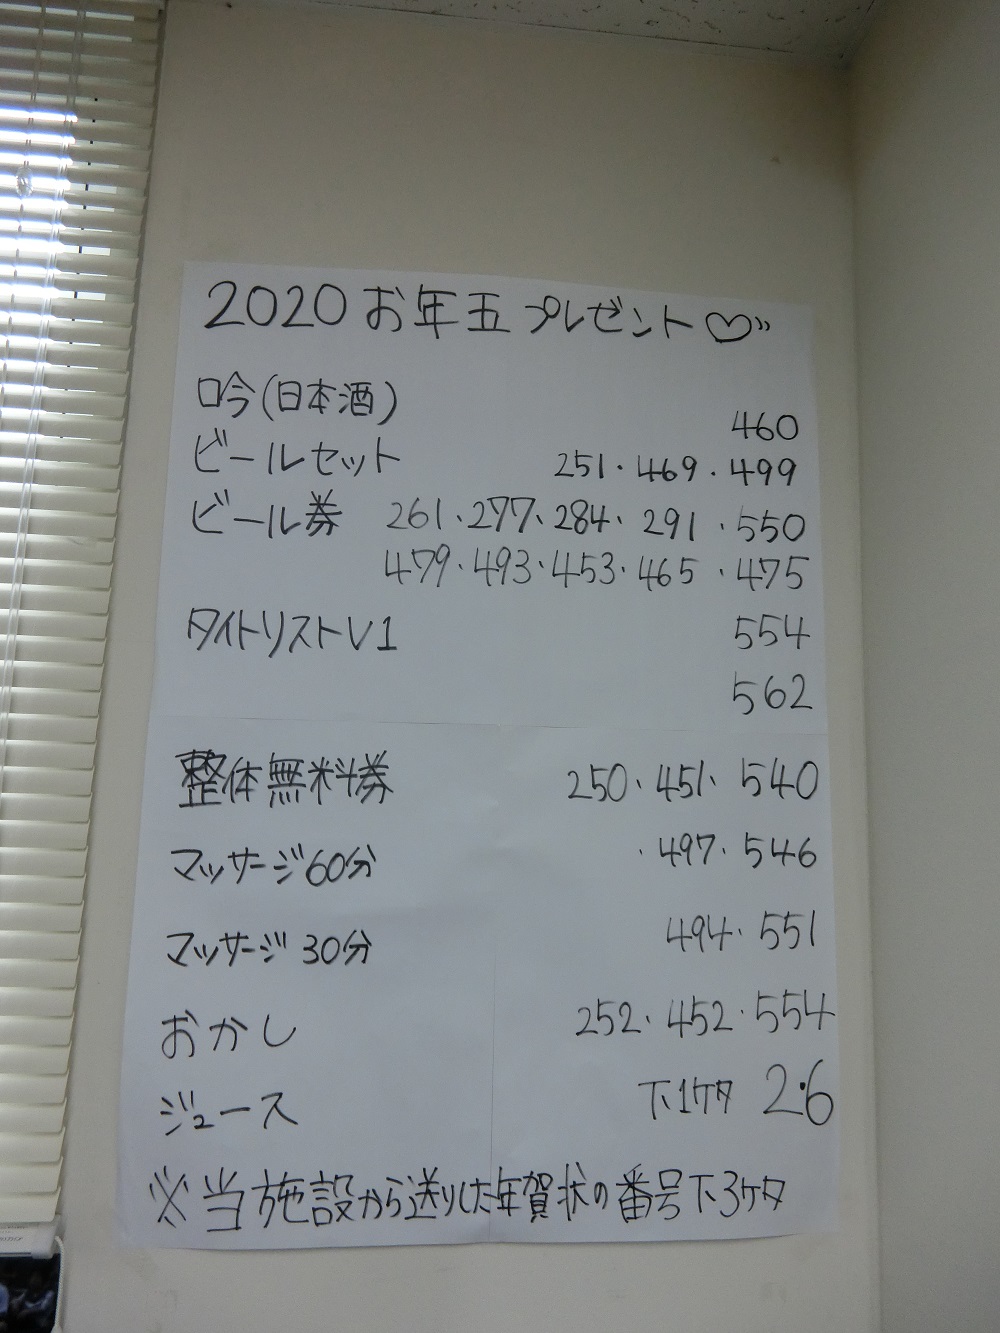 2020 お年玉 プレゼント♡
吟(日本酒) 460
ビールセット 251・469・499
ビール券 261・277・284・291・550
479・493・453・465・475
タイトリストV1 554
562
整体無料券 250・451・540
・497・546
マッサージ60分
マッサージ30分 494・551
おかし 252・452・554
ジュース 下1ケタ 2・6
※当施設から送りした年賀状の番号下3ケタ